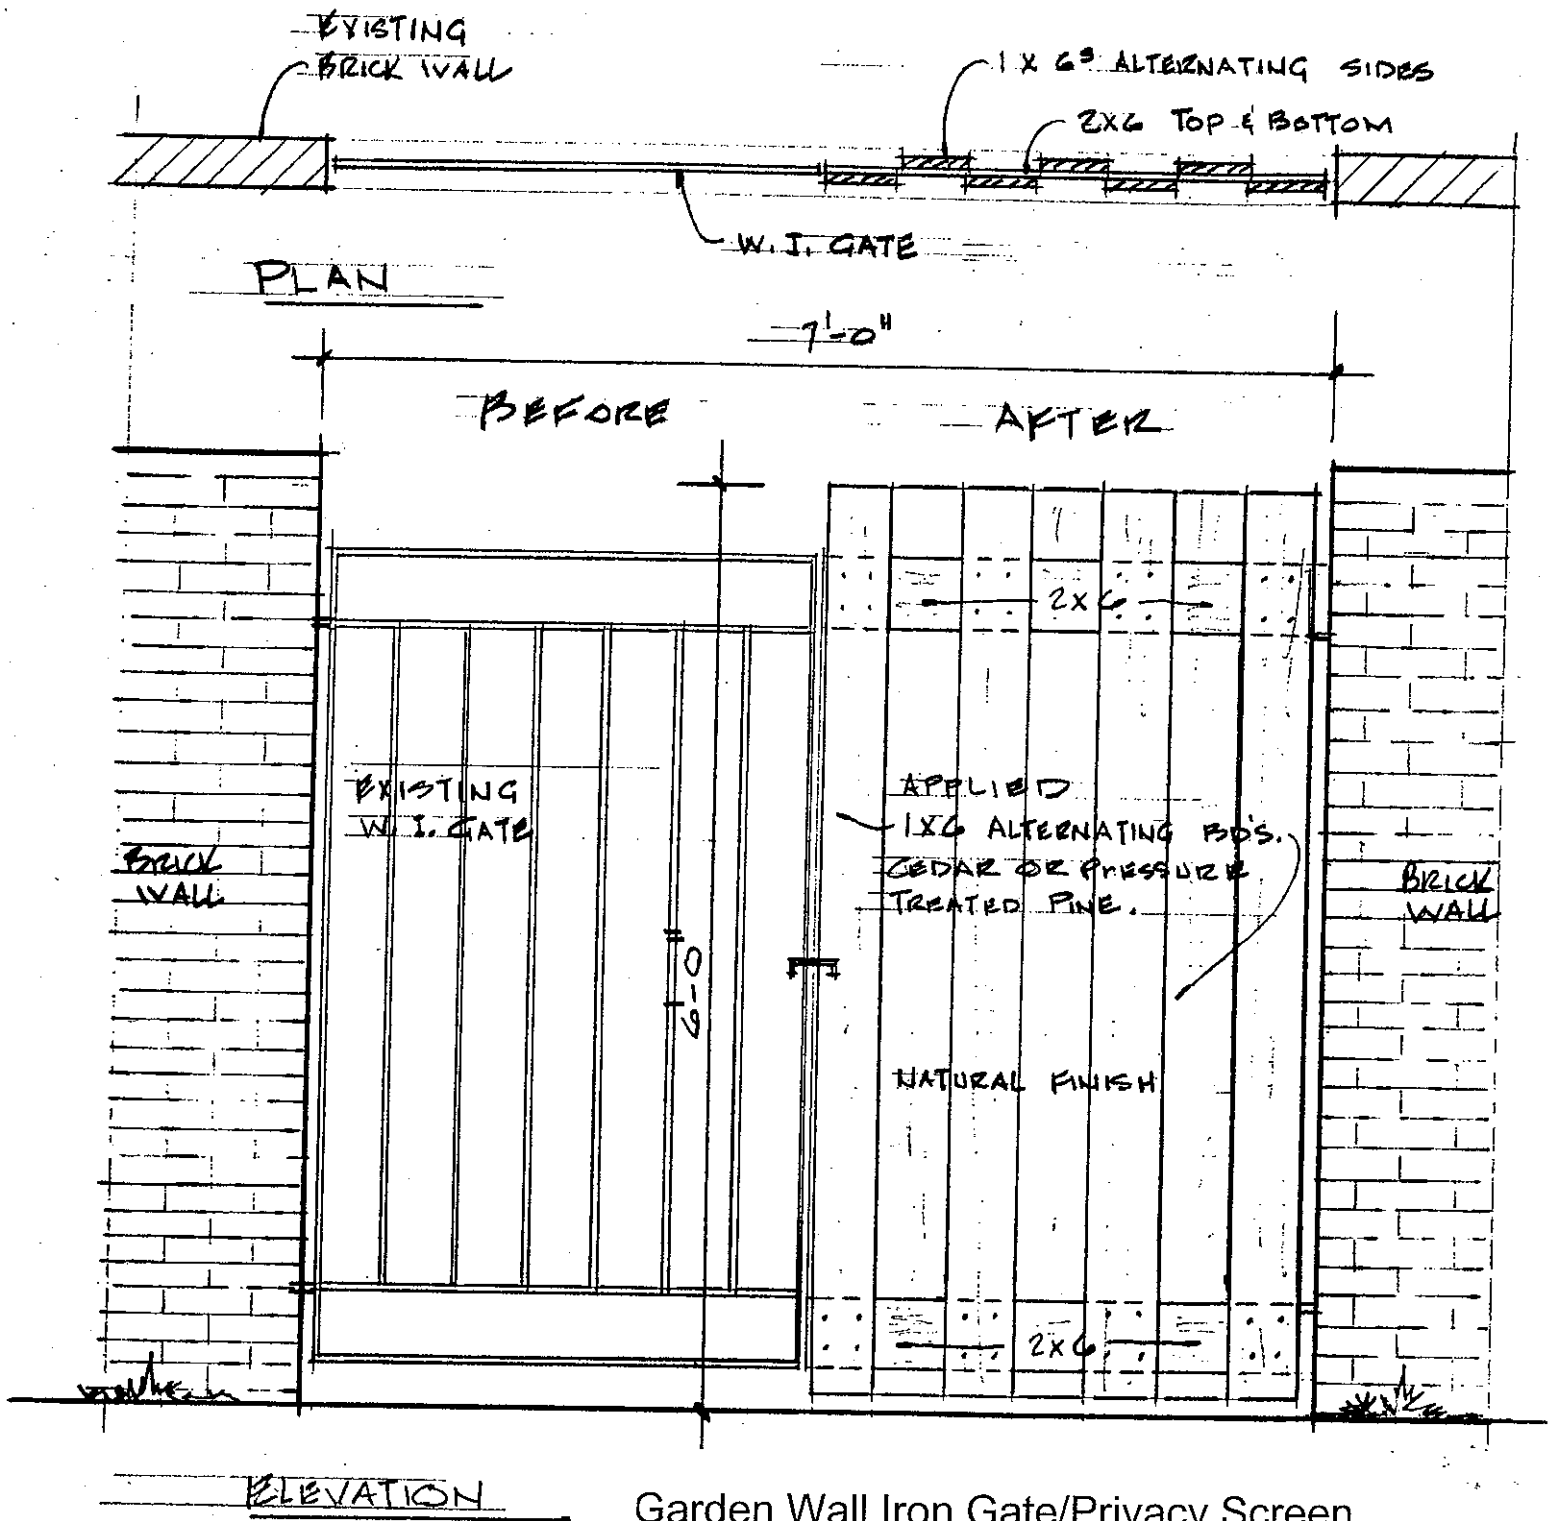 EXISTING
BRICK WALL
1 X 6s ALTERNATING SIDES
2X6 TOP & BOTTOM
W. I. GATE
PLAN
7'-0"
BEFORE
AFTER
2X6
EXISTING
W. I. GATE
APPLIED
1X6 ALTERNATING BD'S.
CEDAR OR PRESSURE
TREATED PINE.
BRICK
WALL
BRICK
WALL
6-0"
NATURAL FINISH
2X6
ELEVATION
Garden Wall Iron Gate/Privacy Screen